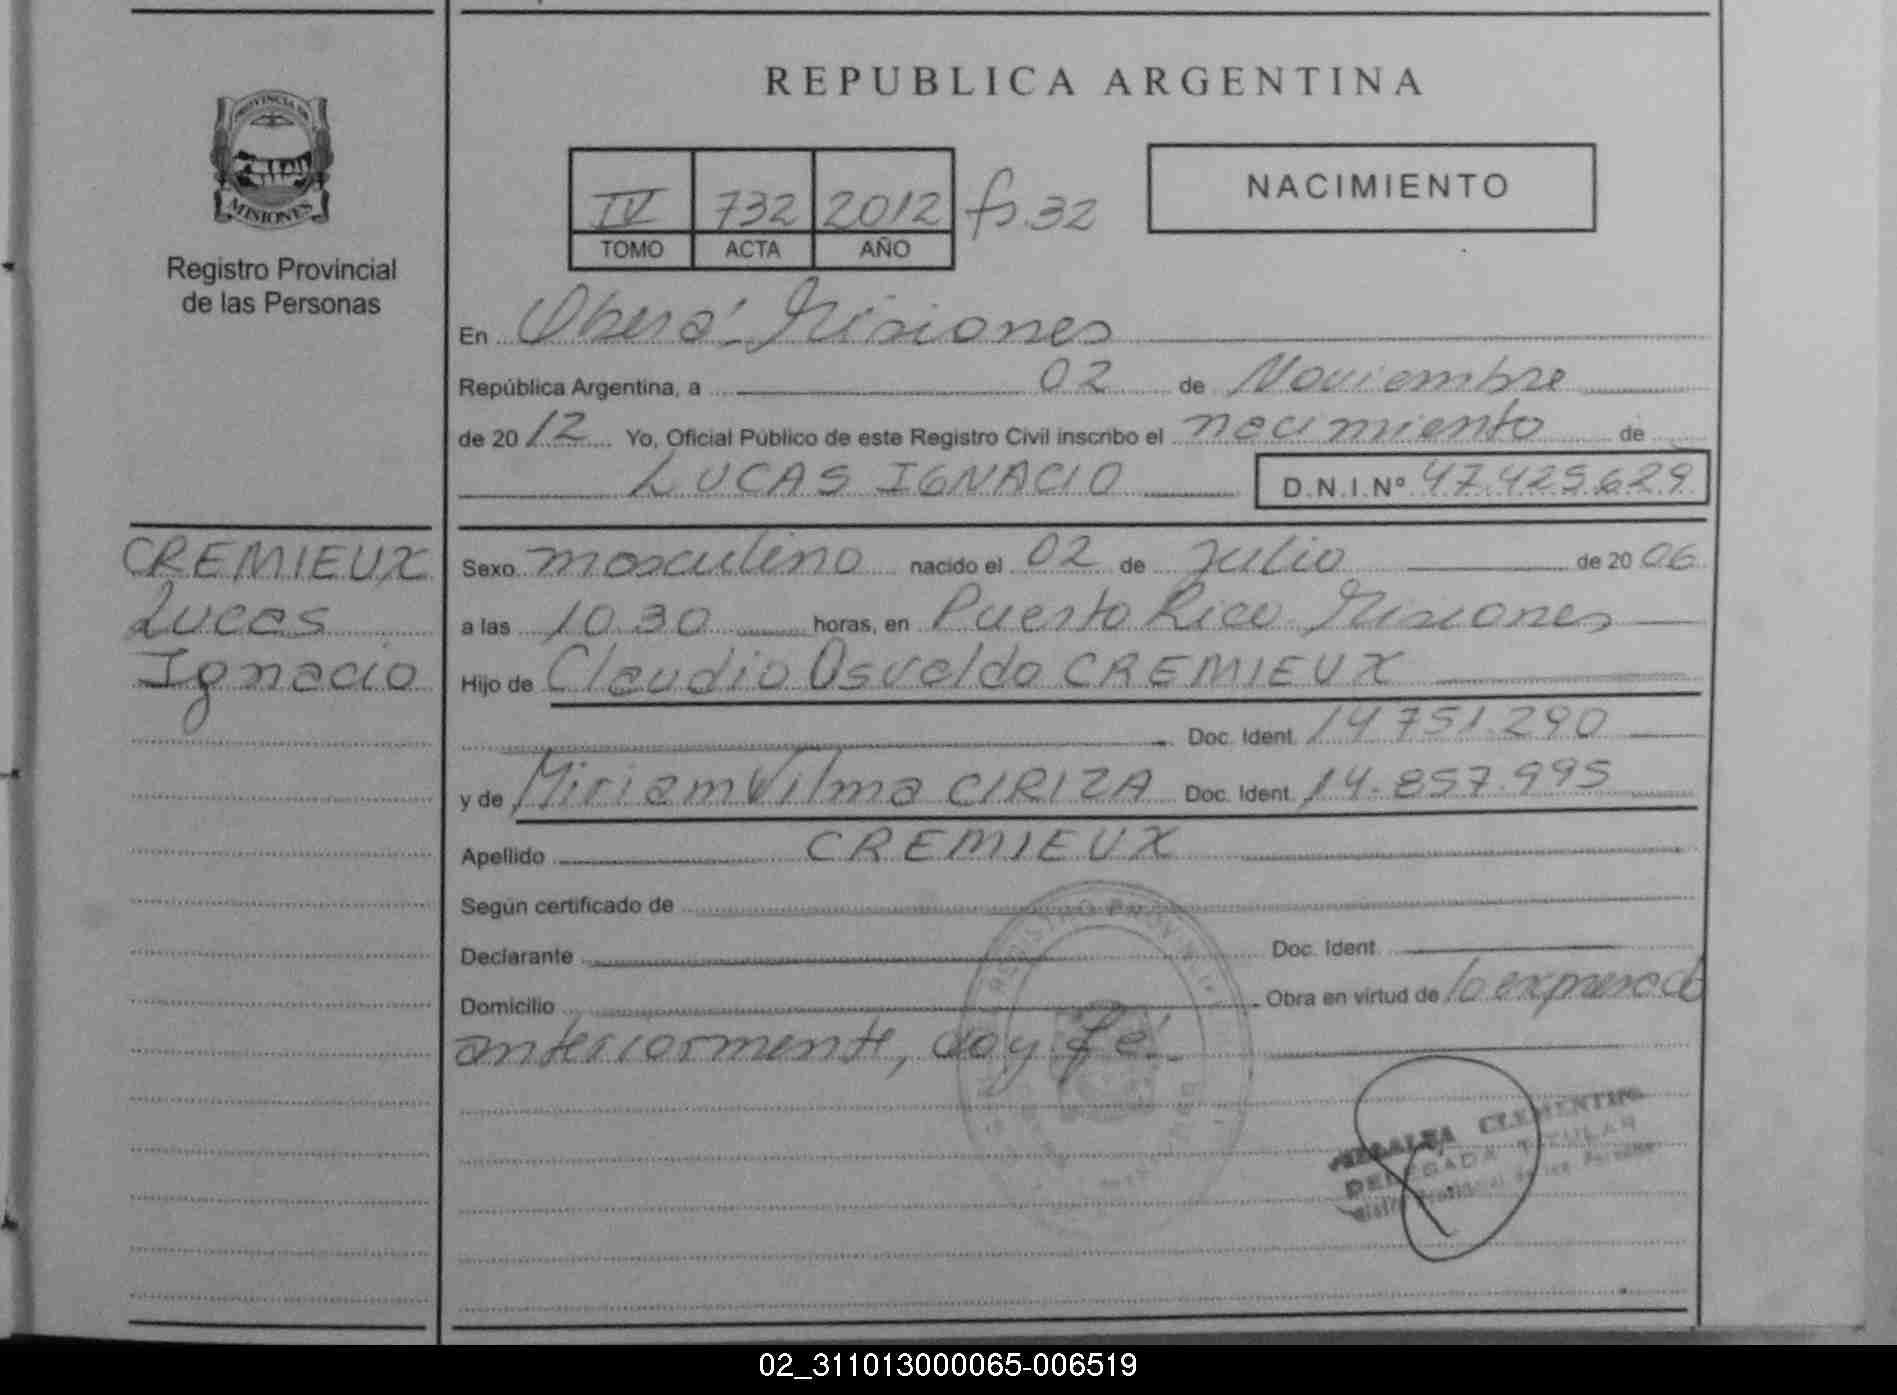 REPUBLICA ARGENTINA
PROVINCIA DE
MISIONES
Registro Provincial
de las Personas
IV 732 2012 fs. 32
TOMO ACTA AÑO
NACIMIENTO
En Oberá - Misiones
República Argentina, a 02 de Noviembre
de 20 12 Yo, Oficial Público de este Registro Civil inscribo el nacimiento de
LUCAS IGNACIO D.N.I.Nº 47.425.629
CREMIEUX
Lucas
Ignacio
Sexo masculino nacido el 02 de Julio de 20 06
a las 10.30 horas, en Puerto Rico - Misiones
Hijo de Claudio Osvaldo CREMIEUX
Doc. Ident. 14.751.290
y de Miriam Vilma CIRIZA Doc. Ident. 14.857.995
Apellido CREMIEUX
Según certificado de
Declarante Doc. Ident.
Domicilio Obra en virtud de lo expresado
anteriormente, doy fé.
REGISTRO PROVINCIAL
CLEMENTINA
DELEGADA TITULAR
Provincial de las Personas
02_311013000065-006519